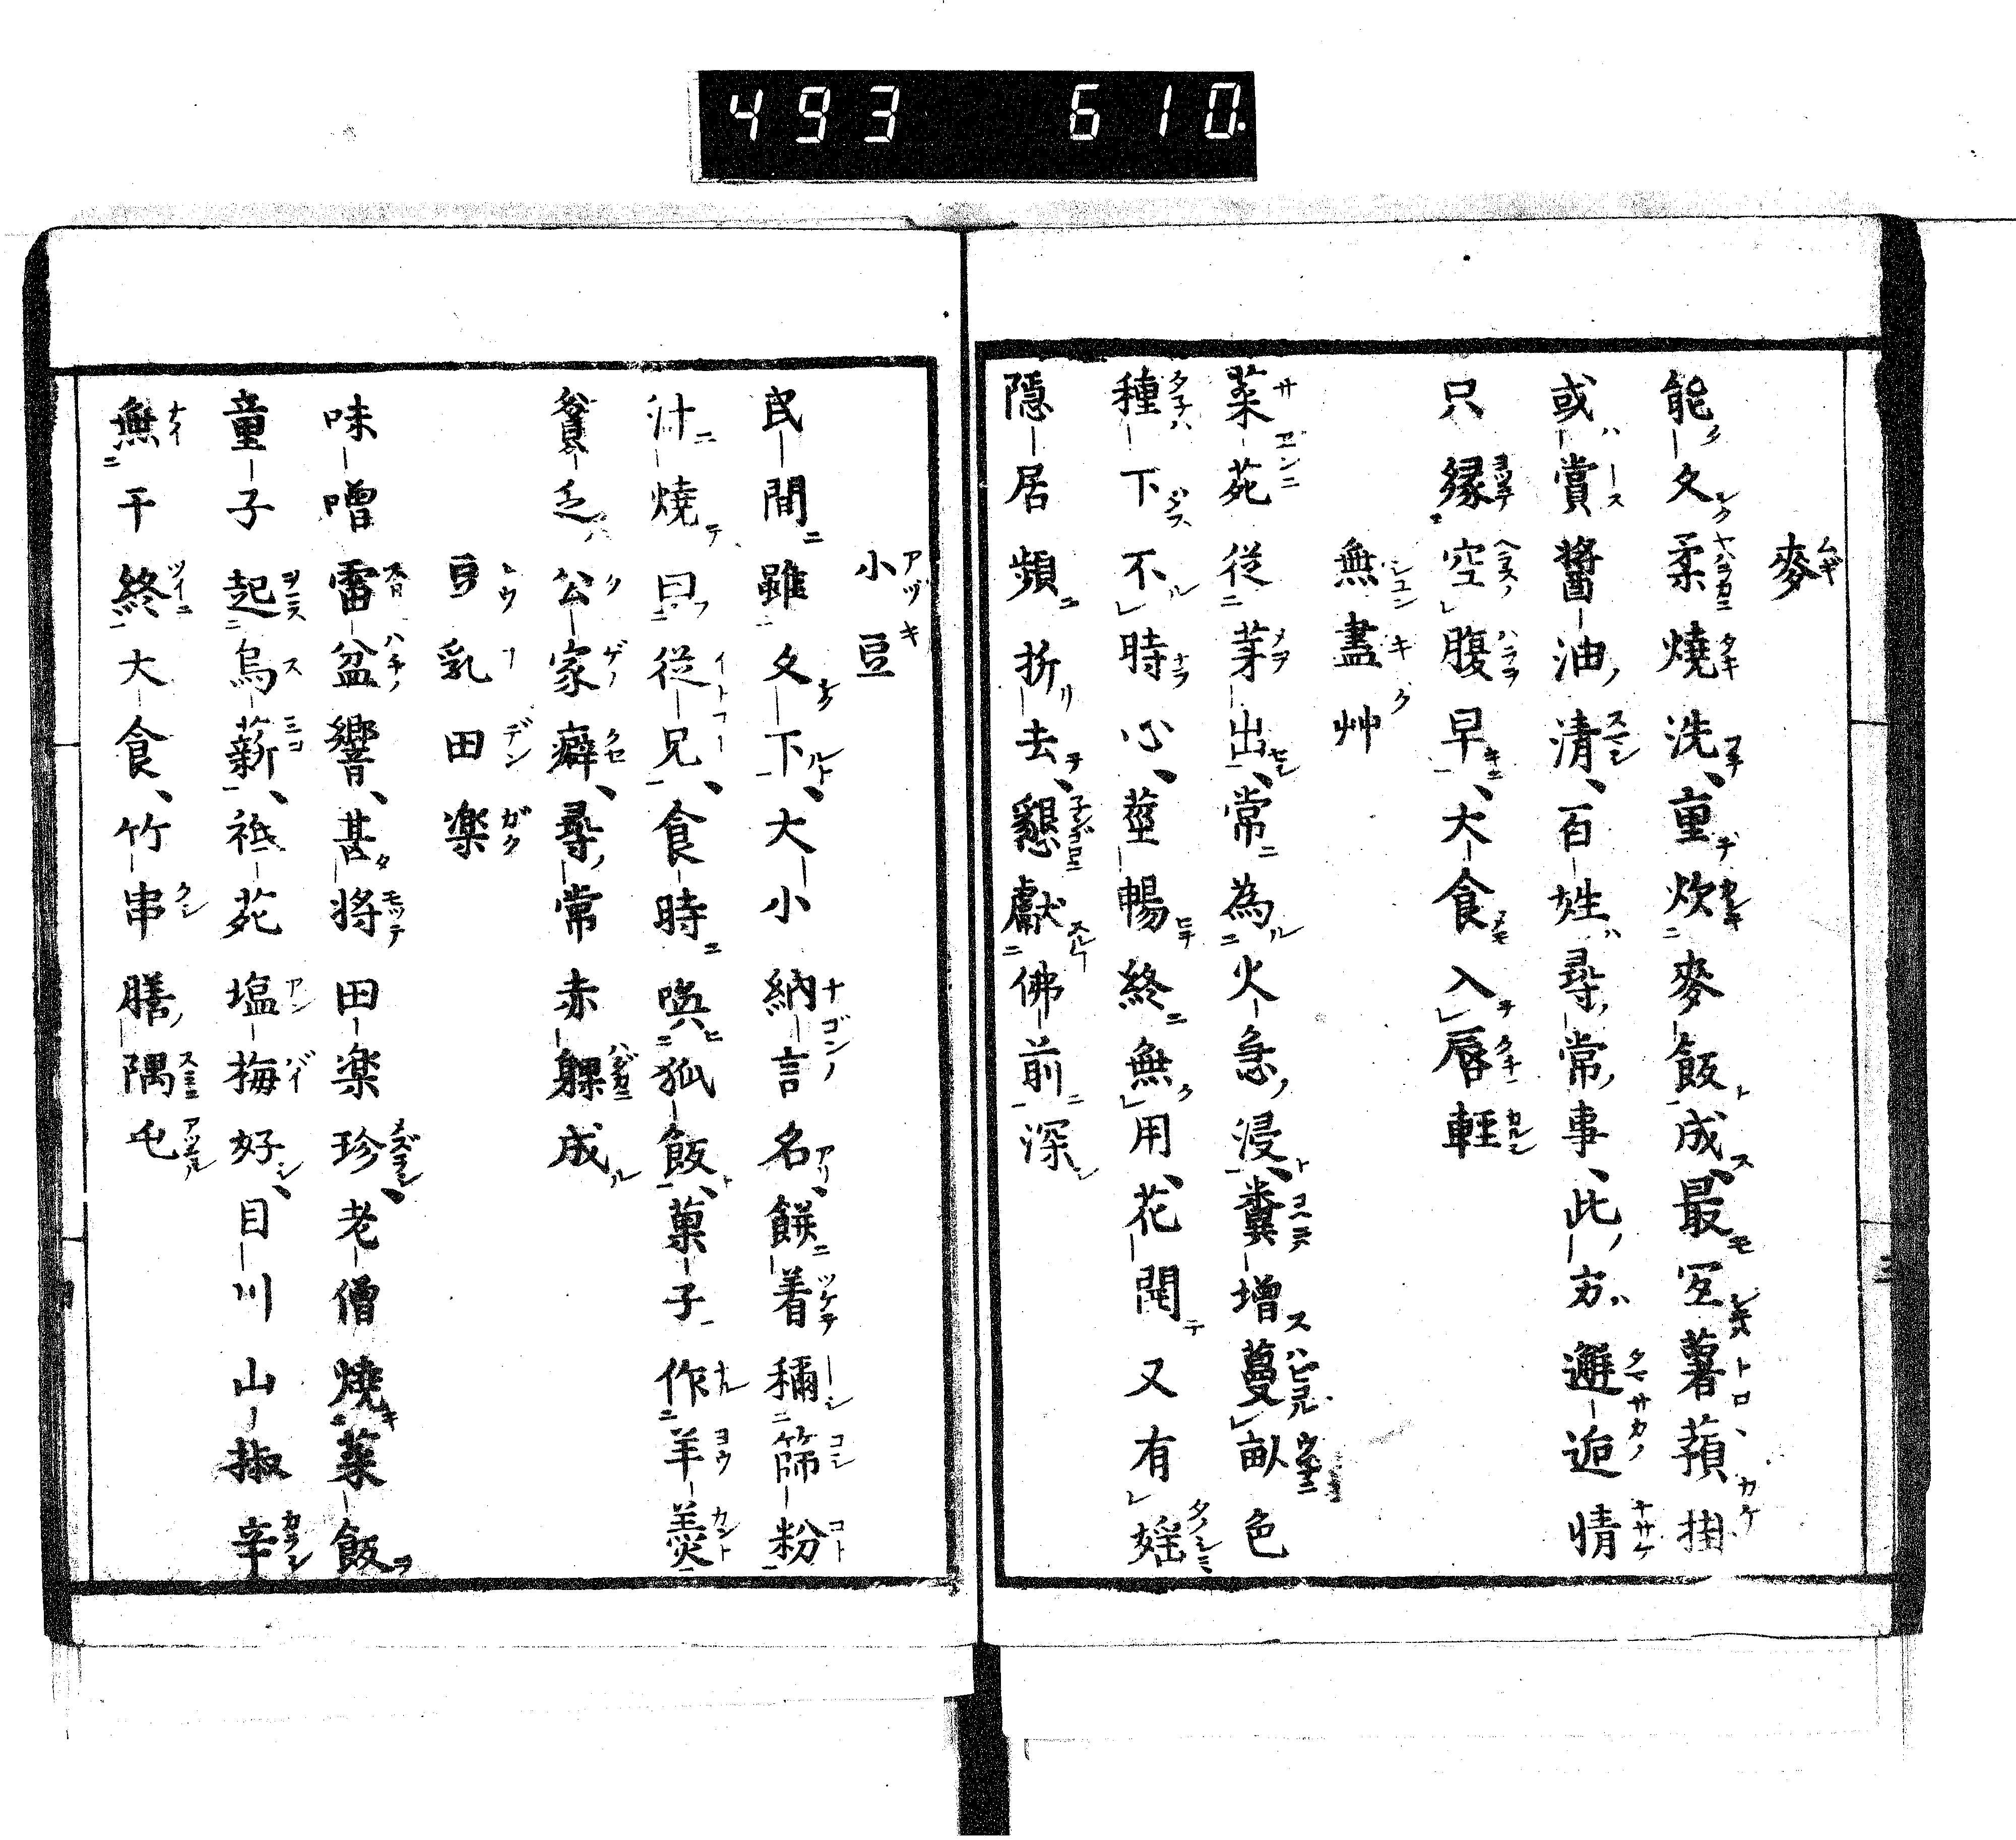 493 610.
麥
能久柔燒洗重炊麥飯成最冝薯蕷掛
或賞醬油清百姓尋常事此方邂逅情
只縁空腹早大食入唇輕
無盡艸
菜苑従芽出常為火急浸糞増蔓畝色
種下不時心莖暢終無用花開又有婬
隠居頻折去懇獻佛前深
小豆
民間雖久下大小納言名餅着稱篩粉
汁燒曰従兄食時喚狐飯菓子作羊羹
貧乏公家癖尋常赤躶成
豆乳田楽
味噌雷盆響甚将田楽珍老僧燒菜飯
童子起烏薪祗苑塩梅好目川山椒辛
無干終大食竹串膳隅屯